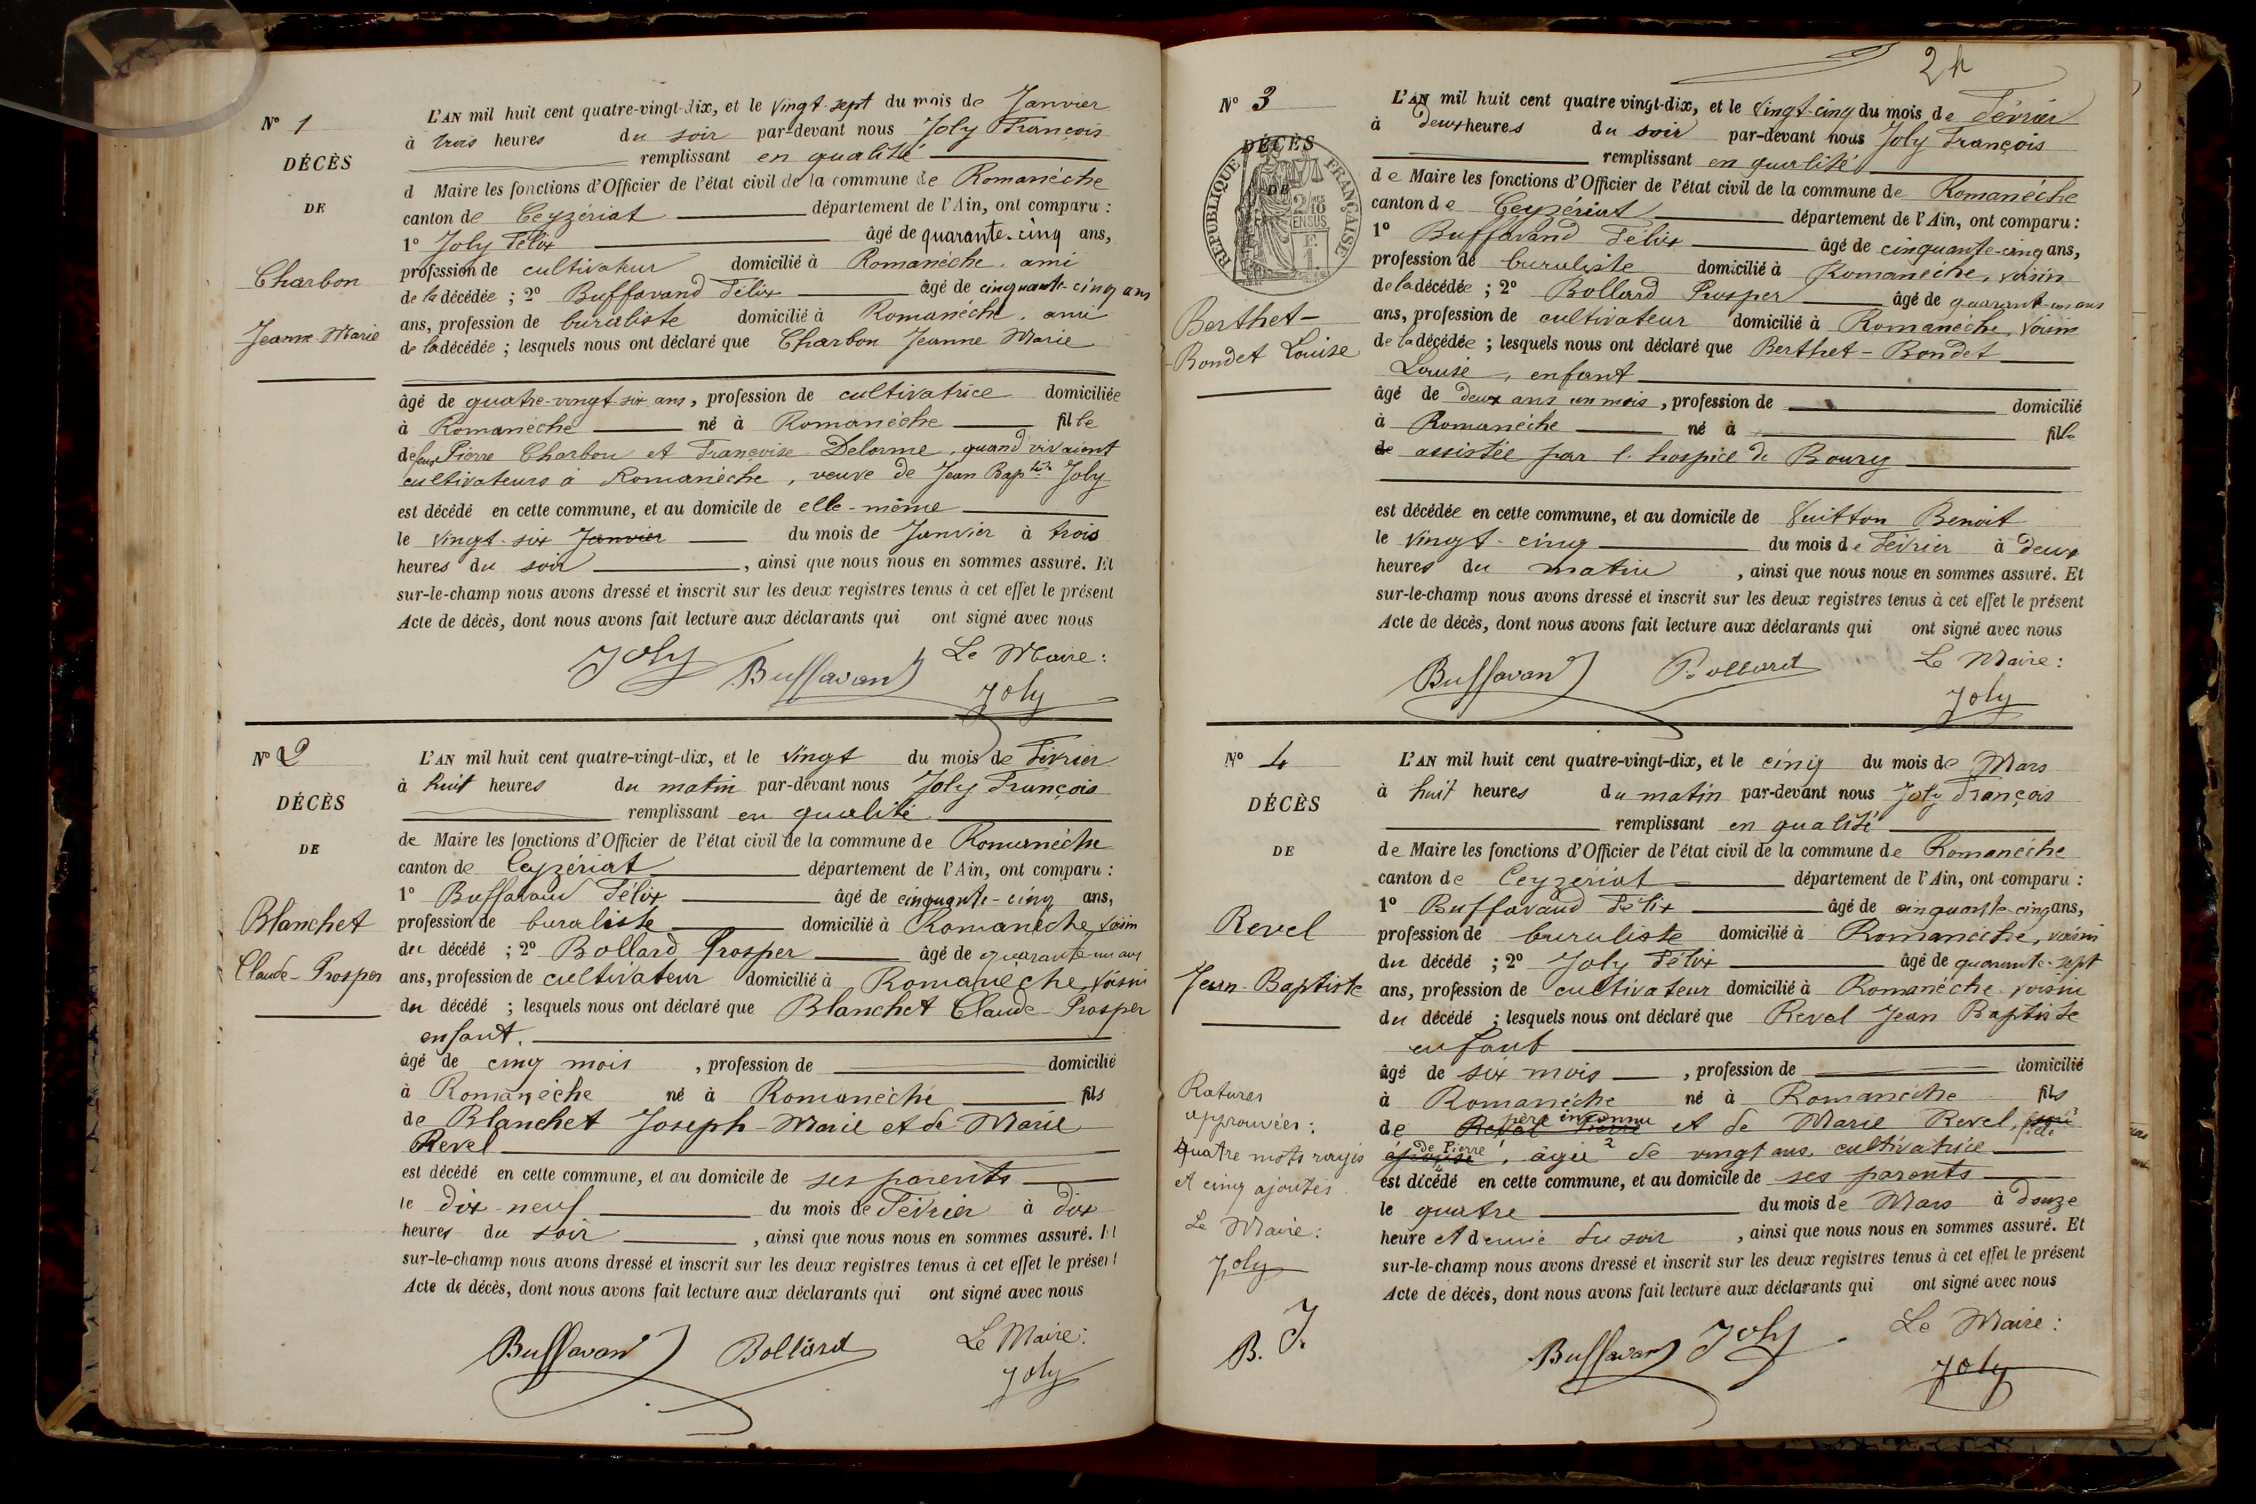 N° 1
DÉCÈS
DE
Charbon
Jeanne Marie
L'AN mil huit cent quatre-vingt-dix, et le vingt-sept du mois de Janvier
à trois heures du soir par-devant nous Joly François
remplissant en qualité
d Maire les fonctions d'Officier de l'état civil de la commune de Romanèche
canton de Ceyzériat département de l'Ain, ont comparu :
1° Joly Félix âgé de quarante-cinq ans,
profession de cultivateur domicilié à Romanèche, ami
de la décédée ; 2° Buffavand Félix âgé de cinquante-cinq ans
ans, profession de buraliste domicilié à Romanèche, ami
de la décédée ; lesquels nous ont déclaré que Charbon Jeanne Marie
âgé de quatre-vingt-six ans, profession de cultivatrice domiciliée
à Romanèche né à Romanèche fille
de feus Pierre Charbon et Françoise Delorme, quand vivaient
cultivateurs à Romanèche, veuve de Jean Bapte Joly
est décédé en cette commune, et au domicile de elle-même
le vingt-six Janvier du mois de Janvier à trois
heures du soir, ainsi que nous nous en sommes assuré. Et
sur-le-champ nous avons dressé et inscrit sur les deux registres tenus à cet effet le présent
Acte de décès, dont nous avons fait lecture aux déclarants qui ont signé avec nous
Joly Buffavand Le Maire :
Joly
N° 2
DÉCÈS
DE
Blanchet
Claude-Prosper
L'AN mil huit cent quatre-vingt-dix, et le vingt du mois de Février
à huit heures du matin par-devant nous Joly François
remplissant en qualité
de Maire les fonctions d'Officier de l'état civil de la commune de Romanèche
canton de Ceyzériat département de l'Ain, ont comparu :
1° Buffavand Félix âgé de cinquante-cinq ans,
profession de buraliste domicilié à Romanèche, voisin
du décédé ; 2° Bollard Prosper âgé de quarante-un ans
ans, profession de cultivateur domicilié à Romanèche, voisin
du décédé ; lesquels nous ont déclaré que Blanchet Claude-Prosper
enfant,
âgé de cinq mois, profession de domicilié
à Romanèche né à Romanèche fils
de Blanchet Joseph-Marie et de Marie
Revel
est décédé en cette commune, et au domicile de ses parents
le dix-neuf du mois de Février à dix
heures du soir, ainsi que nous nous en sommes assuré. Et
sur-le-champ nous avons dressé et inscrit sur les deux registres tenus à cet effet le présent
Acte de décès, dont nous avons fait lecture aux déclarants qui ont signé avec nous
Buffavand Bollard Le Maire :
Joly
N° 3
DÉCÈS
DE
RÉPUBLIQUE FRANÇAISE
Berthet-
Bondet Louise
L'AN mil huit cent quatre vingt-dix, et le vingt-cinq du mois de Février
à deux heures du soir par-devant nous Joly François
remplissant en qualité
de Maire les fonctions d'Officier de l'état civil de la commune de Romanèche
canton de Ceyzériat département de l'Ain, ont comparu :
1° Buffavand Félix âgé de cinquante-cinq ans,
profession de buraliste domicilié à Romanèche, voisin
de la décédée ; 2° Bollard Prosper âgé de quarante-un ans
ans, profession de cultivateur domicilié à Romanèche, voisin
de la décédée ; lesquels nous ont déclaré que Berthet-Bondet
Louise, enfant
âgé de deux ans un mois, profession de domicilié
à Romanèche né à fille
de assistée par l'hospice de Bourg
est décédée en cette commune, et au domicile de Vuitton Benoit
le vingt-cinq du mois de Février à deux
heures du matin, ainsi que nous nous en sommes assuré. Et
sur-le-champ nous avons dressé et inscrit sur les deux registres tenus à cet effet le présent
Acte de décès, dont nous avons fait lecture aux déclarants qui ont signé avec nous
Buffavand P. Bollard Le Maire :
Joly
N° 4
DÉCÈS
DE
Revel
Jean-Baptiste
Ratures
approuvées :
Quatre mots rayés
et cinq ajoutés
Le Maire :
Joly
B. J.
L'AN mil huit cent quatre-vingt-dix, et le cinq du mois de Mars
à huit heures du matin par-devant nous Joly François
remplissant en qualité
de Maire les fonctions d'Officier de l'état civil de la commune de Romanèche
canton de Ceyzériat département de l'Ain, ont comparu :
1° Buffavand Félix âgé de cinquante-cinq ans,
profession de buraliste domicilié à Romanèche, voisin
du décédé ; 2° Joly Félix âgé de quarante-sept
ans, profession de cultivateur domicilié à Romanèche voisin
du décédé ; lesquels nous ont déclaré que Revel Jean Baptiste
enfant
âgé de six mois, profession de domicilié
à Romanèche né à Romanèche fils
père inconnu
de Revel et de Marie Revel,
de Pierre
âgée de vingt ans, cultivatrice
est décédé en cette commune, et au domicile de ses parents
le quatre du mois de Mars à douze
heure et demie du soir, ainsi que nous nous en sommes assuré. Et
sur-le-champ nous avons dressé et inscrit sur les deux registres tenus à cet effet le présent
Acte de décès, dont nous avons fait lecture aux déclarants qui ont signé avec nous
Buffavand Joly Le Maire :
Joly